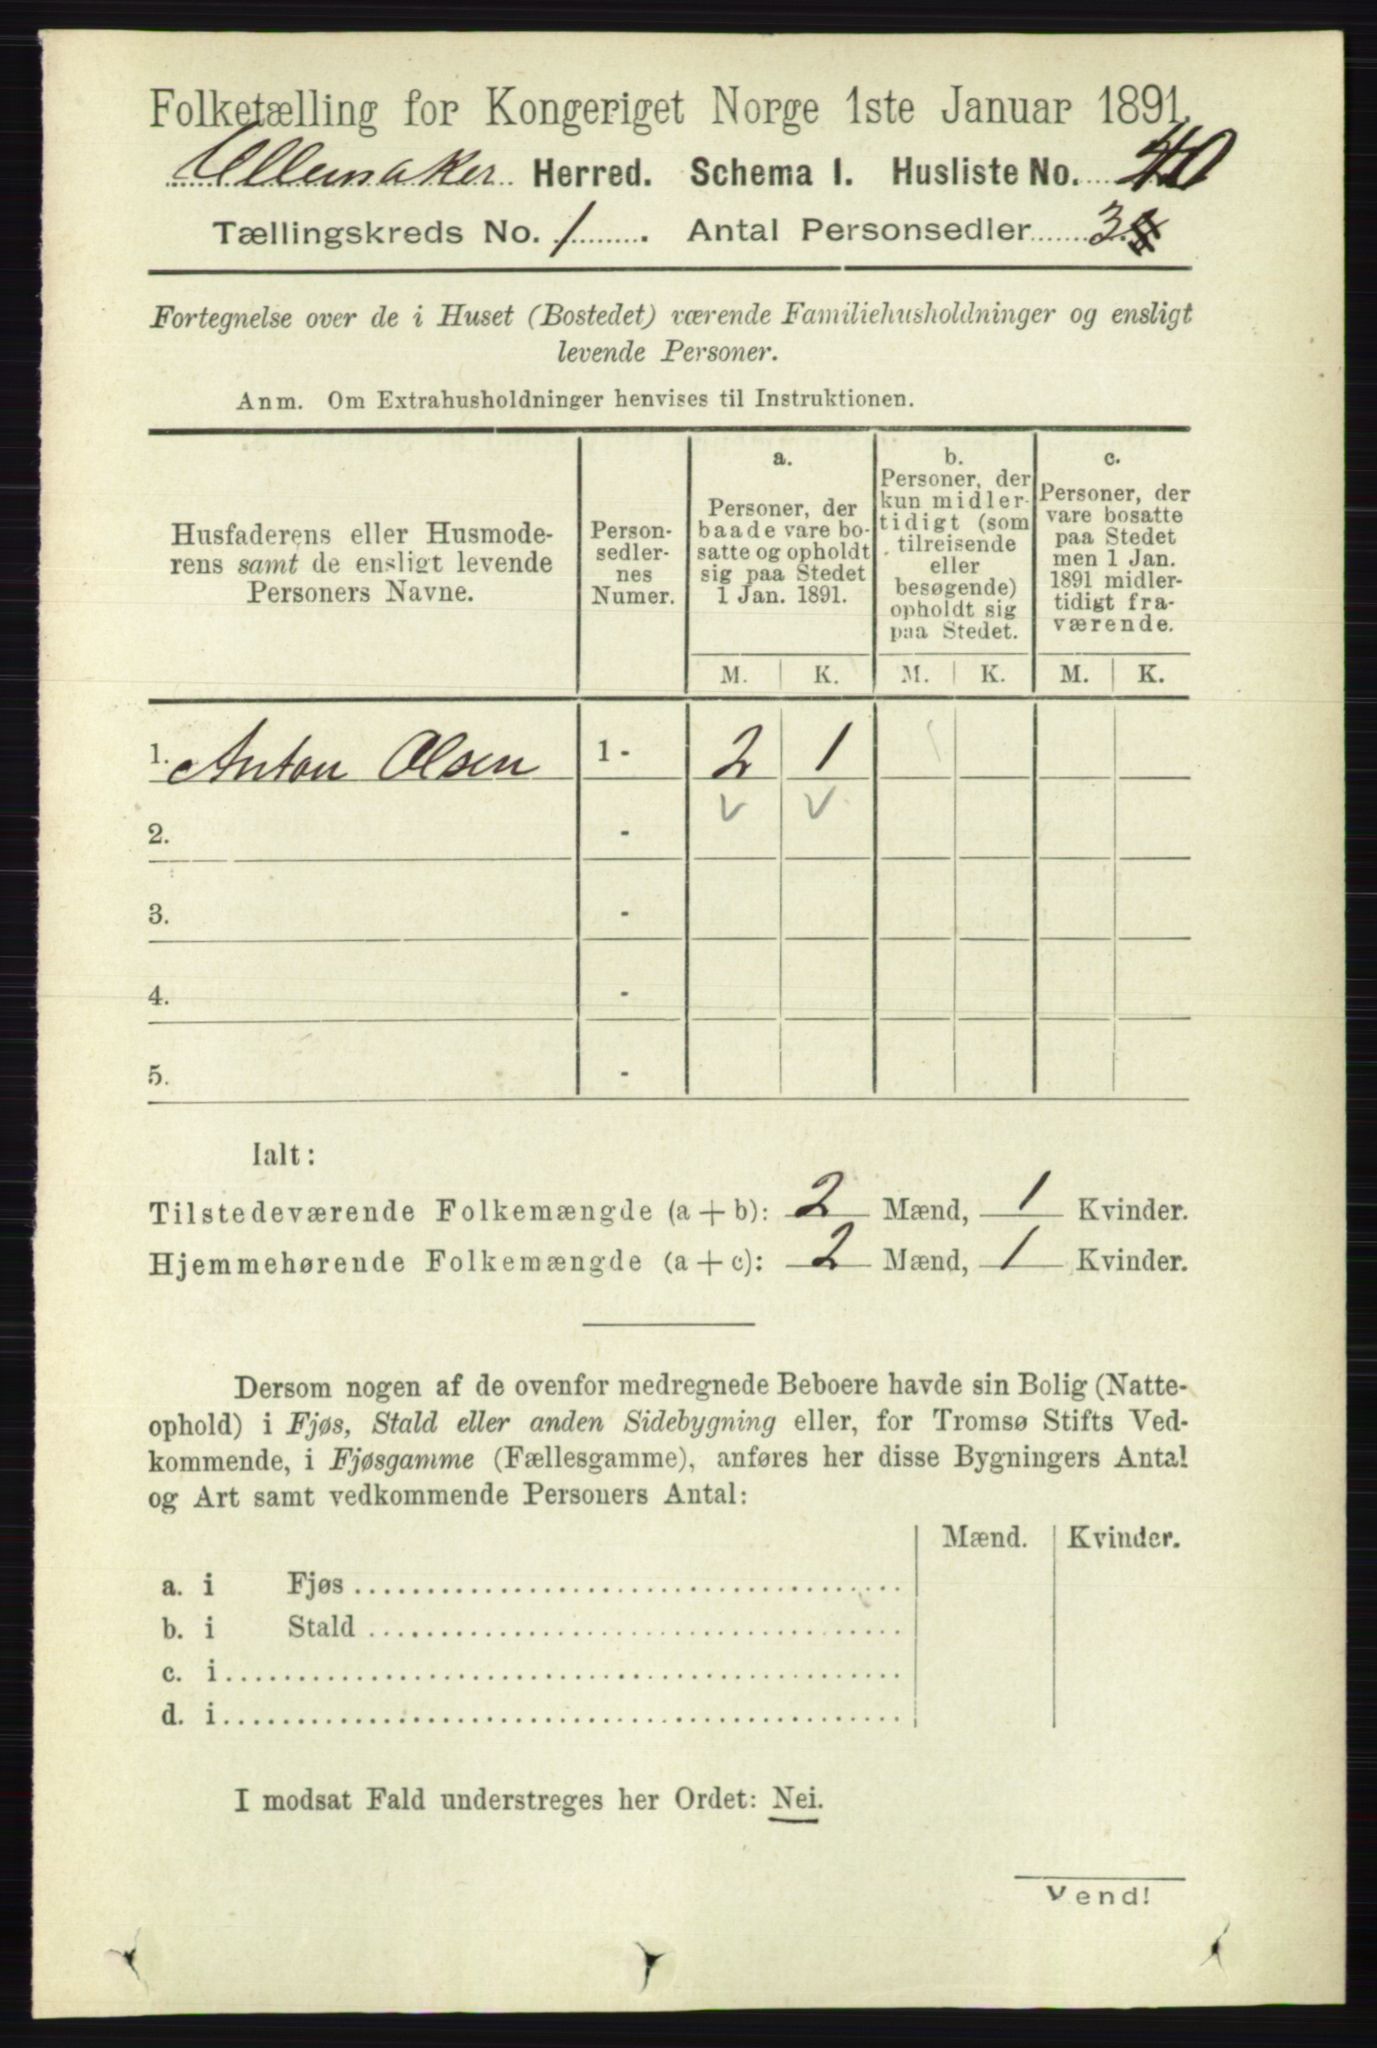 Folketælling for Kongeriget Norge 1ste Januar 1891.
Ullensaker Herred. Schema I. Husliste No. 40
Tællingskreds No. 1. Antal Personsedler 3
Fortegnelse over de i Huset (Bostedet) værende Familiehusholdninger og ensligt
levende Personer.
Anm. Om Extrahusholdninger henvises til Instruktionen.
Husfaderens eller Husmode-
rens samt de ensligt levende
Personers Navne.
Person-
sedler-
nes
Numer.
a.
Personer, der
baade vare bo-
satte og opholdt
sig paa Stedet
1 Jan. 1891.
b.
Personer, der
kun midler-
tidigt (som
tilreisende
eller
besøgende)
opholdt sig
paa Stedet.
c.
Personer, der
vare bosatte
paa Stedet
men 1 Jan.
1891 midler-
tidigt fra-
værende.
M. K. M. K. M. K.
1. Anton Olsen 1 - 2 1
2. -
3. -
4. -
5. -
Ialt:
Tilstedeværende Folkemængde (a + b): 2 Mænd, 1 Kvinder.
Hjemmehørende Folkemængde (a + c): 2 Mænd, 1 Kvinder.
Dersom nogen af de ovenfor medregnede Beboere havde sin Bolig (Natte-
ophold) i Fjøs, Stald eller anden Sidebygning eller, for Tromsø Stifts Ved-
kommende, i Fjøsgamme (Fællesgamme), anføres her disse Bygningers Antal
og Art samt vedkommende Personers Antal:
Mænd. Kvinder.
a. i Fjøs
b. i Stald
c. i
d. i
I modsat Fald understreges her Ordet: Nei.
Vend!